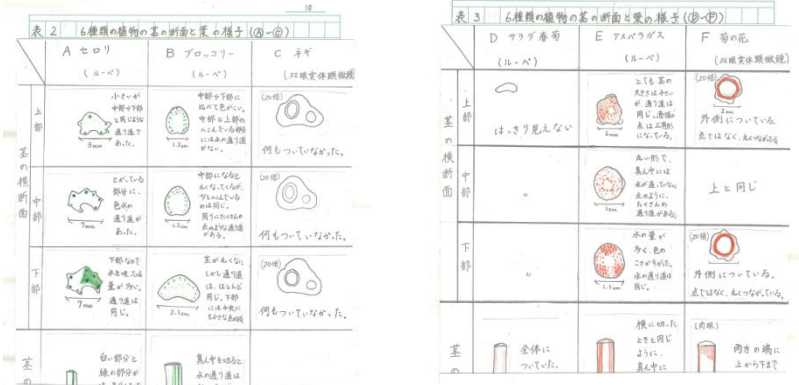 10
表2 6種類の植物の茎の断面と葉の様子(Ⓐ〜Ⓒ)
A セロリ
(ルーペ)
B ブロッコリー
(ルーペ)
C ネギ
(双眼実体顕微鏡)
茎の横断面
上部
小さいが
中部や下部
と同じような
通り道で
あった。
3mm
中部や下部に
比べて色がこい。
中部と上部の
へこんでいる部分
には水の通り道
がない。
1.2cm
(20倍)
何もついていなかった。
中部
とがっている
部分に、
色水の
通り道が
あった。
7mm
中部になると
丸くなってくるが、
少しへこんでいる
のは同じ。
周りにたくさんの
点のような通り道
がある。
1.2cm
(20倍)
何もついていなかった。
下部
下部なので
水を吸ってる
量が多い。
通り道は
同じ。
7mm
茎が丸くない。
しかし通り道
は、ほとんど
同じ。下部
には中央に
も
2.1cm
(20倍)
何もついていなかった。
茎の
白い部分と
緑の部分が
真ん中を切ると
水の通り道は
表3 6種類の植物の茎の断面と葉の様子(Ⓓ〜Ⓕ)
D サラダ春菊
(ルーペ)
E アスパラガス
(ルーペ)
F 菊の花
(双眼実体顕微鏡)
茎の横断面
上部
はっきり見えない
とても茎の
大きさは小さい
が通り道は
同じ。
点は三角形
になっている。
6mm
(20倍)
2mm
外側についている。
点ではなく、丸くつながっている
中部
〃
丸い形で、
真ん中には
水が通っていない
点のように、
たくさんの
通り道がある。
1cm
上と同じ
下部
〃
水の量が
多く、色の
こさがちがった。
水の通り道は
同じ。
1.1cm
(20倍)
外側についている。
点ではなく、丸くつながっている。
茎の
全体に
ついていた。
横に切った
ときと同じ
ように、
真ん中に
(肉眼)
両方の端に
上から下まで